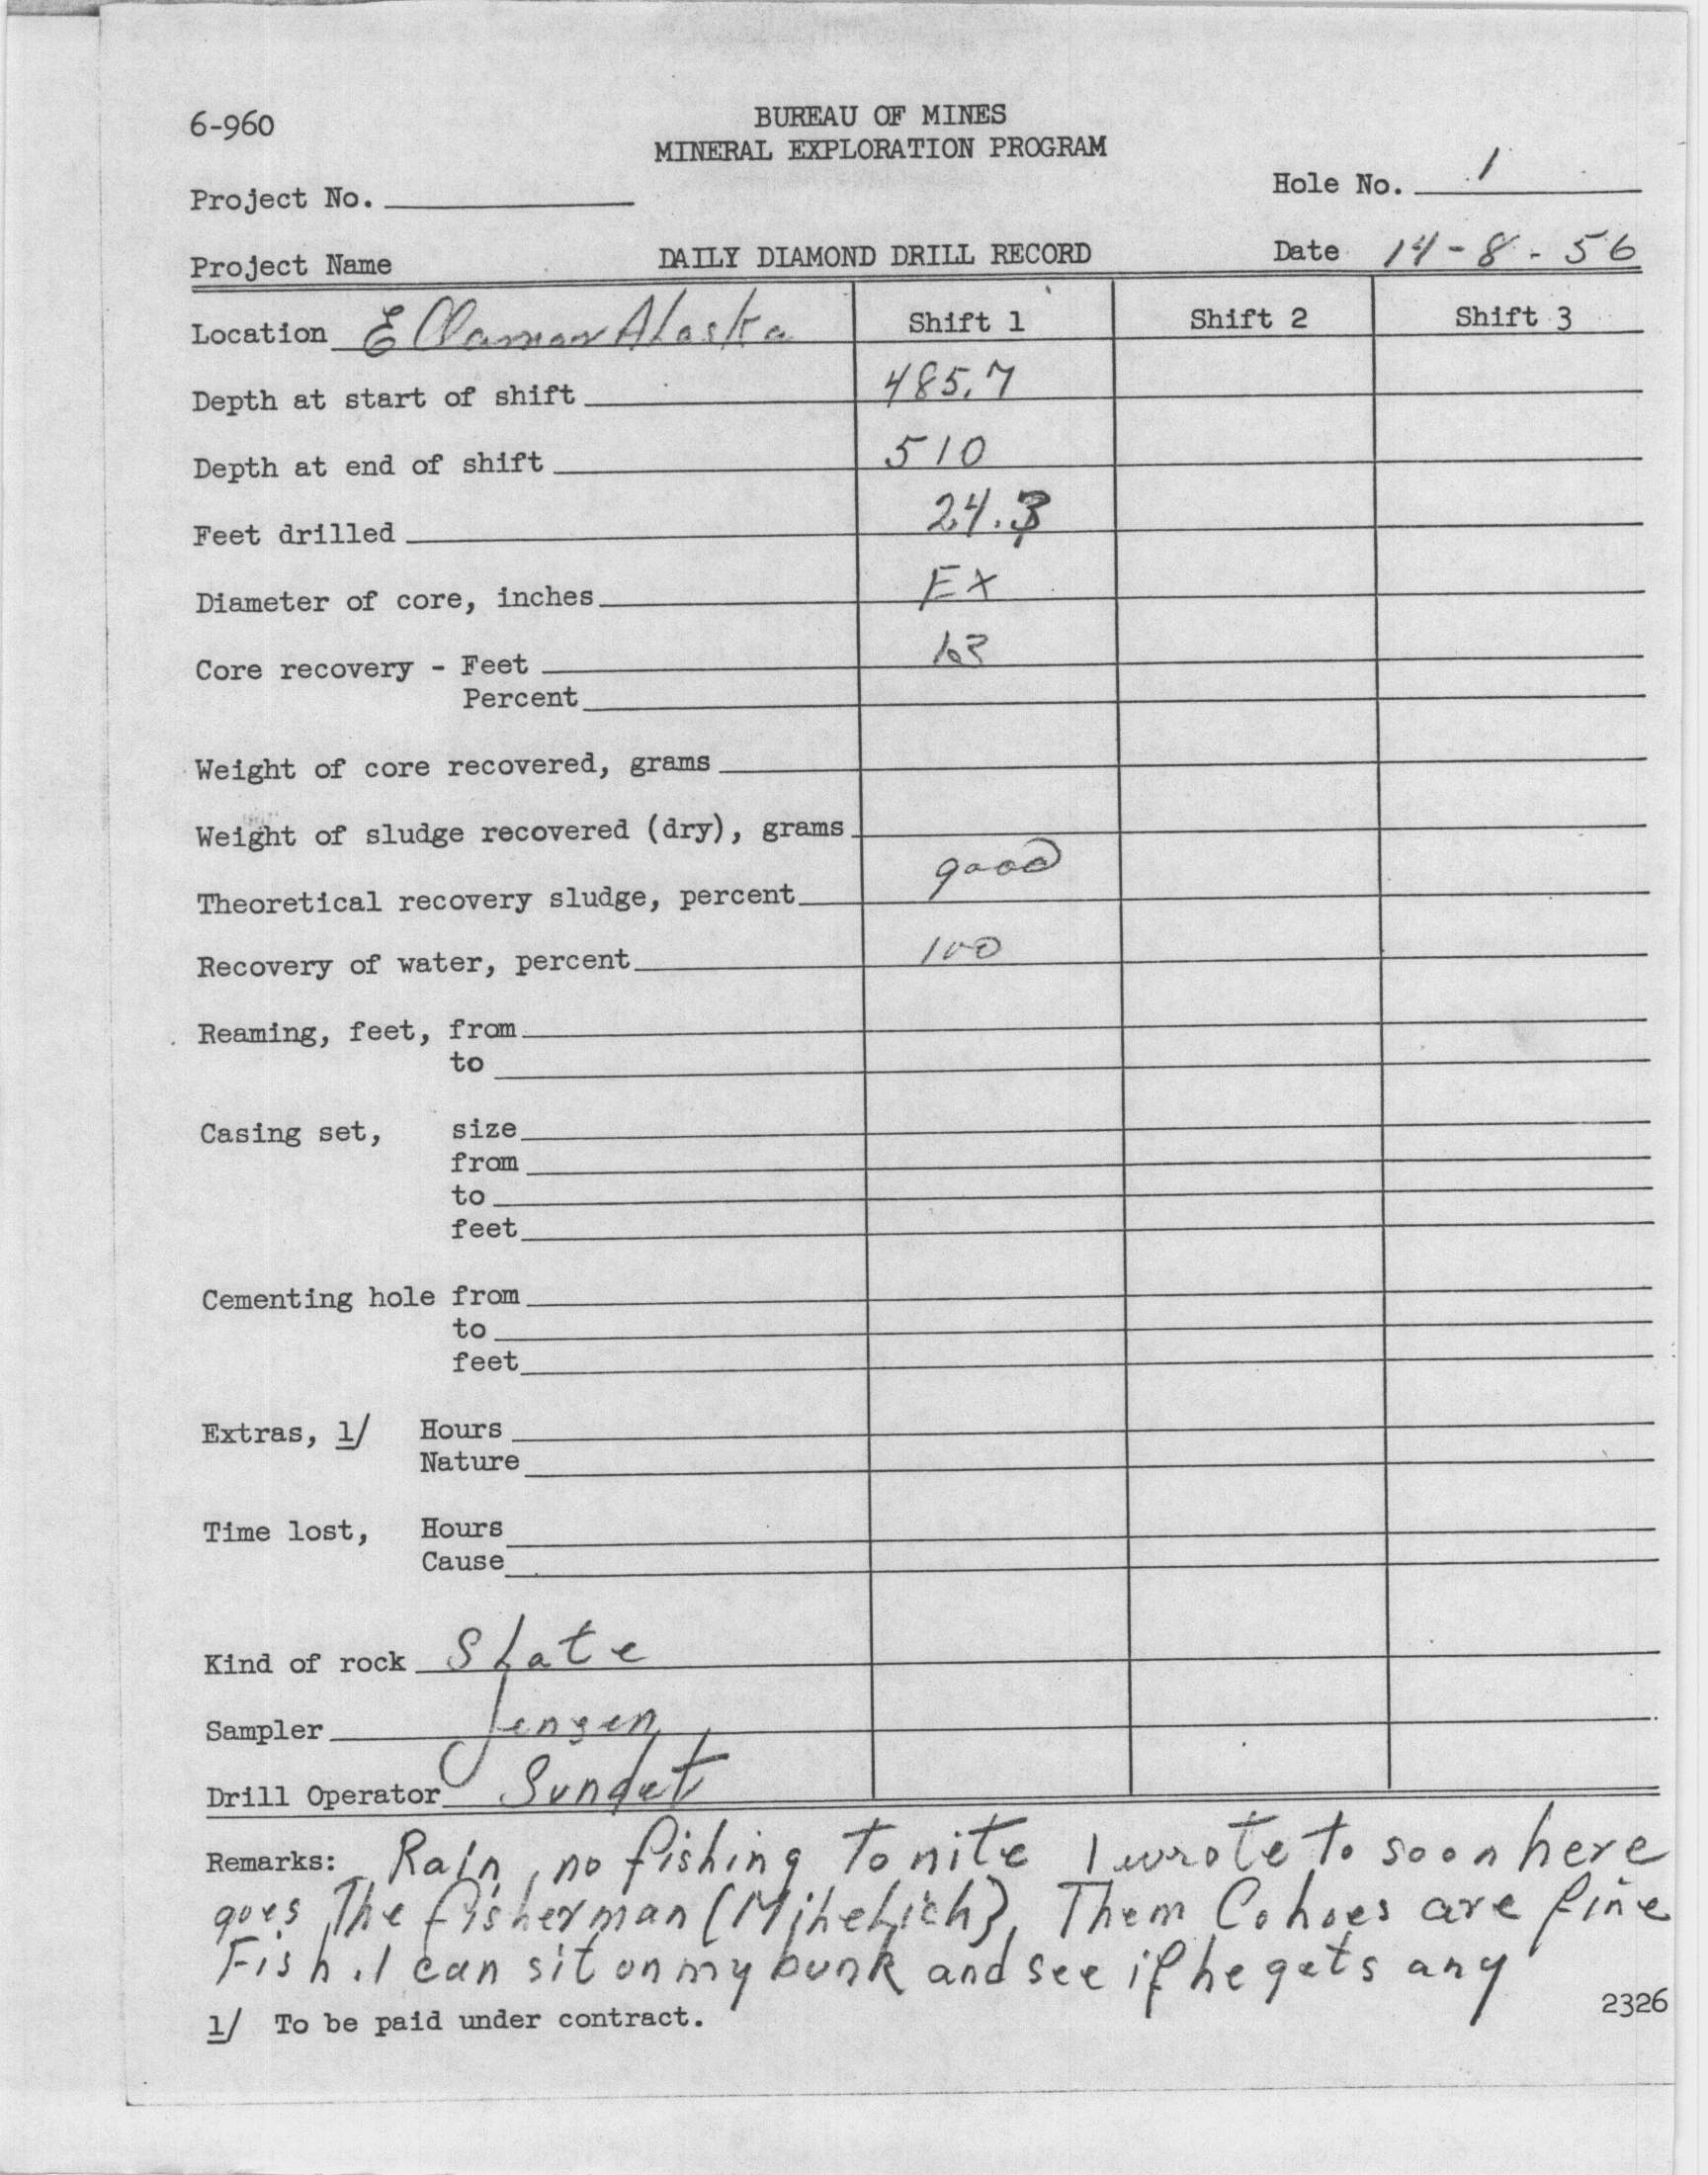 6-960
BUREAU OF MINES
MINERAL EXPLORATION PROGRAM
Hole No. 1
Project No.
Project Name DAILY DIAMOND DRILL RECORD Date 14-8-56
Location Ellamar Alaska Shift 1 Shift 2 Shift 3
Depth at start of shift 485.7
Depth at end of shift 510
Feet drilled 24.3
Diameter of core, inches EX
Core recovery - Feet
Percent
Weight of core recovered, grams
Weight of sludge recovered (dry), grams
Theoretical recovery sludge, percent good
Recovery of water, percent 100
Reaming, feet, from
to
Casing set, size
from
to
feet
Cementing hole from
to
feet
Extras, 1/ Hours
Nature
Time lost, Hours
Cause
Kind of rock Slate
Sampler Jensen
Drill Operator
Remarks: Rain, no fishing To nite I wrote to soon here
goes The fisherman (Mihelich), Them Cohoes are fine
Fish. I can sit on my bunk and see if he gets any
1/ To be paid under contract.
2326